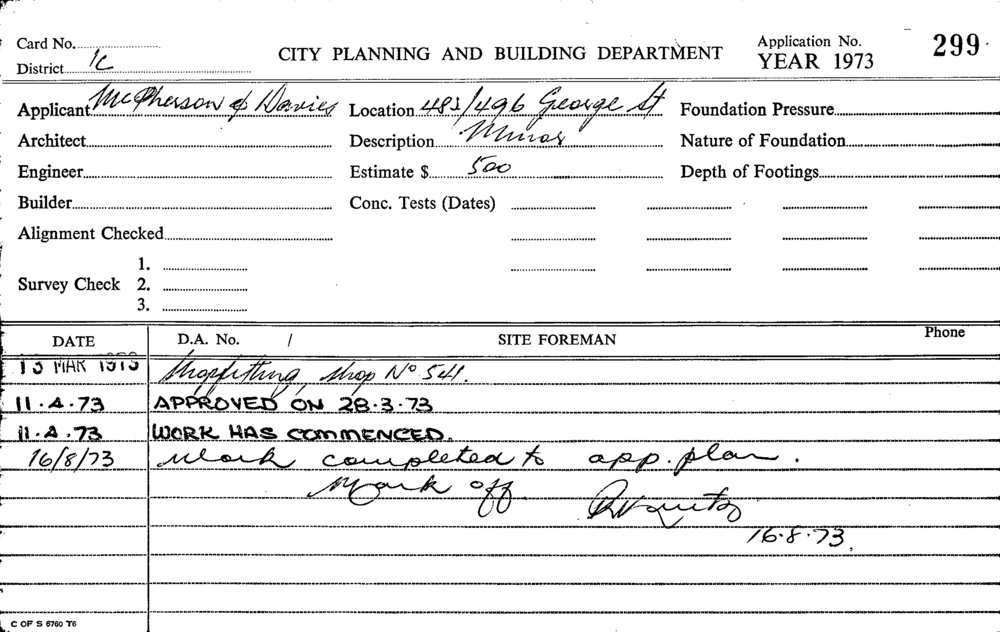 Card No.
District 1C
CITY PLANNING AND BUILDING DEPARTMENT
Application No. 299
YEAR 1973
Applicant McPherson & Davies
Location 483/496 George St
Foundation Pressure
Architect
Description Minor
Nature of Foundation
Engineer
Estimate $ 500
Depth of Footings
Builder
Conc. Tests (Dates)
Alignment Checked
Survey Check 1.
2.
3.
DATE D.A. No. / SITE FOREMAN Phone
13 MAR 1973 Shopfitting, shop No 541.
11.4.73 APPROVED ON 28.3.73
11.4.73 WORK HAS COMMENCED.
16/8/73 Work completed to app. plan.
Mark off
16.8.73.
C OF S 6760 T6